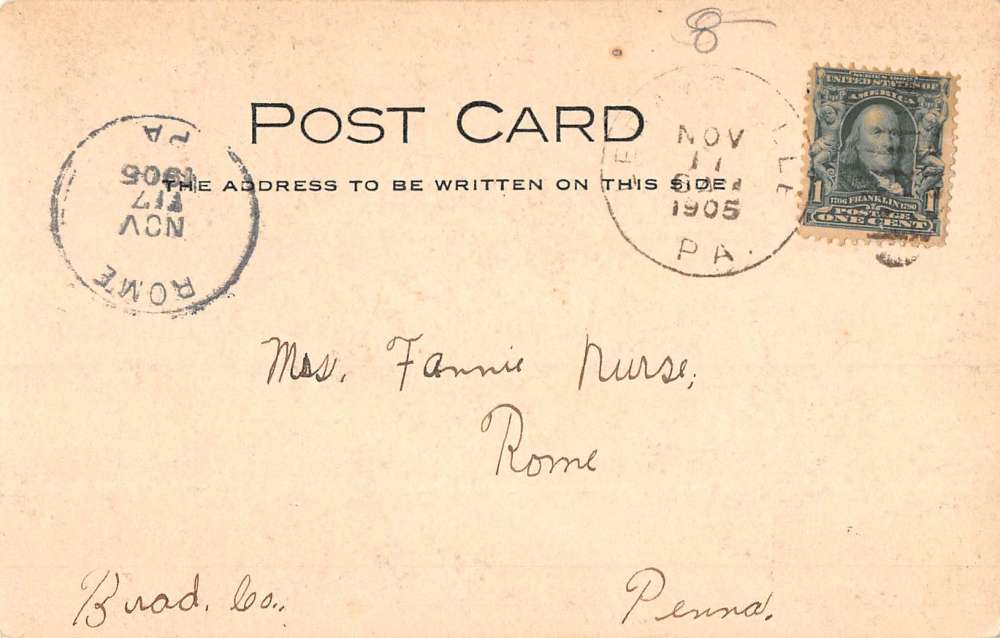 8
POST CARD
THE ADDRESS TO BE WRITTEN ON THIS SIDE
ROME
NOV
17
1905
PA
NOV
1905
PA.
SERIES 1902
UNITED STATES OF
AMERICA
1706 FRANKLIN 1790
POSTAGE
1 ONE CENT 1
Mrs. Fannie Nurse,
Rome
Brad. Co., Penna.